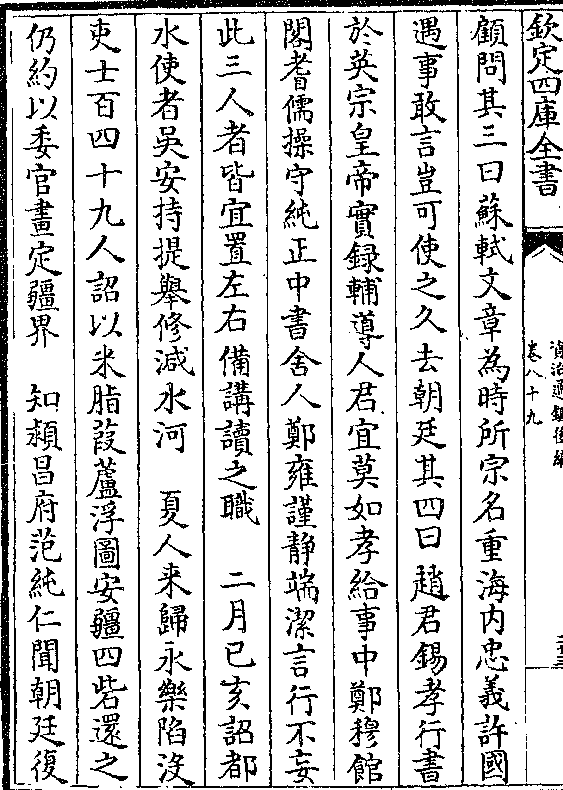 欽定四庫全書
資治通鑑後編
卷八十九
顧問其三曰蘇軾文章為時所宗名重海内忠義許國
遇事敢言豈可使之久去朝廷其四曰趙君錫孝行書
於英宗皇帝實録輔導人君宜莫如孝給事中鄭穆館
閣耆儒操守純正中書舍人鄭雍謹静端潔言行不妄
此三人者皆宜置左右備講讀之職　二月已亥詔都
水使者吳安持提舉修減水河　夏人来歸永樂陷没
吏士百四十九人詔以米脂葭蘆浮圖安疆四砦還之
仍約以委官畫定疆界　知潁昌府范純仁聞朝廷復